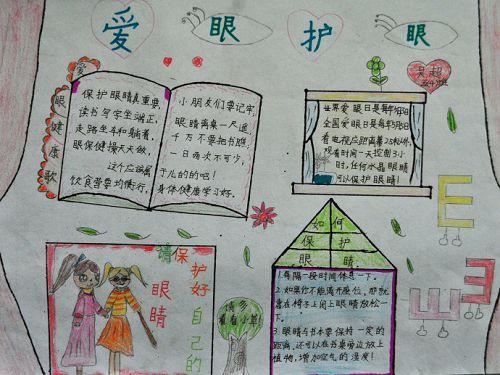 爱 眼 护 眼
爱眼健康歌
保护眼睛真重要,
读书写字坐端正,
走路坐车和躺着,
眼保健操天天做,
这个应该属
饮食营养均衡行,
小朋友们要记牢,
眼睛离桌一尺通
千万不要把书瞧
一日两次不可少,
于儿的的吧!
身体健康学习好。
吴超
世界爱眼日是每年
全国爱眼日是每年
看电视应距离
观看时间一天控制
时,任何水晶眼睛
可以保护眼睛!
如何
保护
眼睛
1.每隔一段时间休息一下。
2.如果你不能离开座位,那就
靠在椅子上闭上眼睛放松一
下。
3.眼睛与书本要保持一定的
距离,还可以在书桌旁边放上
植物,增加空气的湿度!
请保护好自己的
眼睛
请多
看看小草!
E
E
E